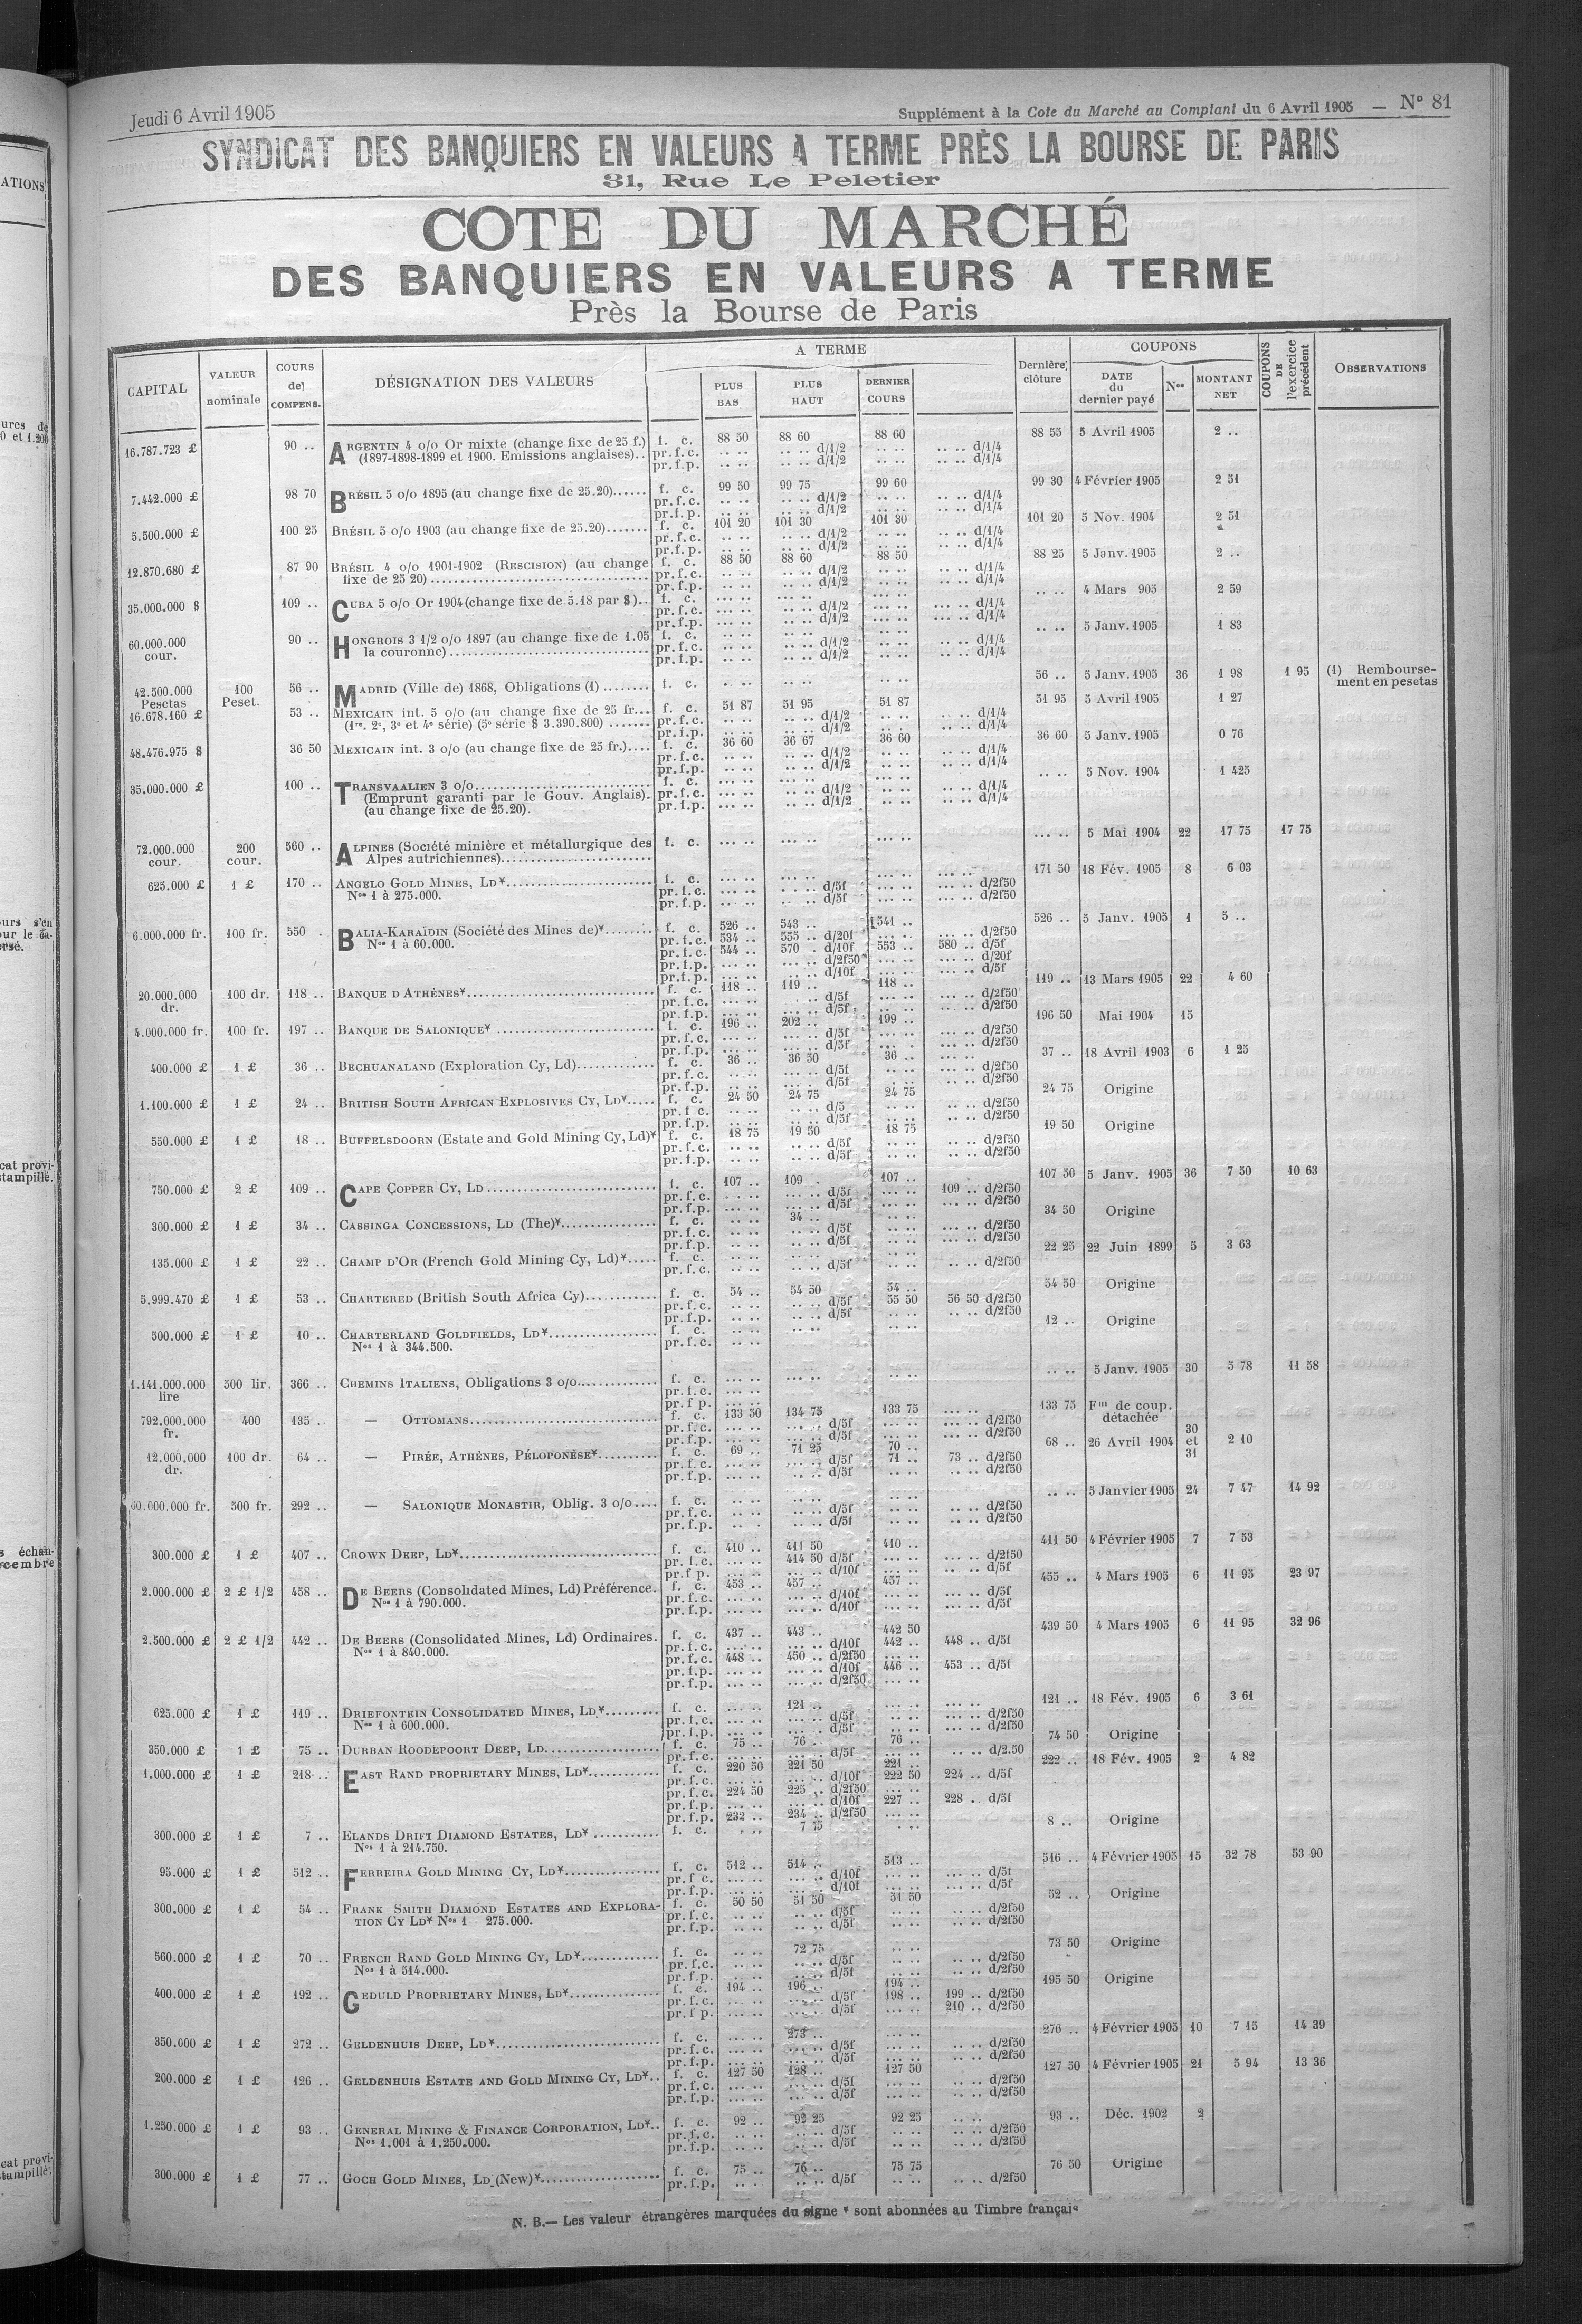 Jeudi 6 Avril 1905 Supplément à la Cote du Marché au Comptant du 6 Avril 1905 — N° 81
SYNDICAT DES BANQUIERS EN VALEURS A TERME PRÈS LA BOURSE DE PARIS
31, Rue Le Peletier
COTE DU MARCHÉ
DES BANQUIERS EN VALEURS A TERME
Près la Bourse de Paris
CAPITAL VALEUR nominale COURS de COMPENS. DÉSIGNATION DES VALEURS A TERME PLUS BAS PLUS HAUT DERNIER COURS Dernière clôture COUPONS DATE du dernier payé Nos MONTANT NET COUPONS DE l'exercice précédent OBSERVATIONS
16.787.723 £ 90 .. ARGENTIN 4 o/o Or mixte (change fixe de 25 f.) f. c. 88 50 88 60 88 60 88 55 5 Avril 1905 2 ..
(1897-1898-1899 et 1900. Emissions anglaises).. pr.f.c. .. .. .. .. d/1/2 .. .. .. .. d/1/4
pr.f.p. .. .. .. .. d/1/2 .. .. .. .. d/1/4
7.442.000 £ 98 70 BRÉSIL 5 o/o 1895 (au change fixe de 25.20)...... f. c. 99 50 99 75 99 60 99 30 4 Février 1905 2 51
pr.f.c. .. .. .. .. d/1/2 .. .. .. .. d/1/4
pr.f.p. .. .. .. .. d/1/2 .. .. .. .. d/1/4
5.500.000 £ 100 25 BRÉSIL 5 o/o 1903 (au change fixe de 25.20)....... f. c. 101 20 101 30 101 30 101 20 5 Nov. 1904 2 51
pr.f.c. .. .. .. .. d/1/2 .. .. .. .. d/1/4
pr.f.p. .. .. .. .. d/1/2 .. .. .. .. d/1/4
12.870.680 £ 87 90 BRÉSIL 4 o/o 1901-1902 (RESCISION) (au change f. c. 88 50 88 60 88 50 88 25 5 Janv. 1905 2 ..
fixe de 25 20)........ pr.f.c. .. .. .. .. d/1/2 .. .. .. .. d/1/4
pr.f.p. .. .. .. .. d/1/2 .. .. .. .. d/1/4
35.000.000 $ 109 .. CUBA 5 o/o Or 1904 (change fixe de 5.18 par $).. f. c. ... .. ... .. ... .. .. .. 4 Mars 905 2 59
pr.f.c. ... .. .. .. d/1/2 ... .. ... .. d/1/4
pr.f.p. ... .. .. .. d/1/2 ... .. ... .. d/1/4
60.000.000 cour. 90 .. HONGROIS 3 1/2 o/o 1897 (au change fixe de 1.05 f. c. .. .. .. .. .. .. .. .. 5 Janv. 1905 1 83
la couronne)........ pr.f.c. .. .. .. .. d/1/2 .. .. .. .. d/1/4
pr.f.p. .. .. .. .. d/1/2 .. .. .. .. d/1/4
42.500.000 Pesetas 100 Peset. 56 .. MADRID (Ville de) 1868, Obligations (1) ........ f. c. .. .. .. .. .. .. 56 .. 5 Janv. 1905 36 1 98 1 95 (1) Remboursement en pesetas
16.678.160 £ 53 .. MEXICAIN int. 5 o/o (au change fixe de 25 fr... f. c. 51 87 51 95 51 87 51 95 5 Avril 1905 1 27
(1re. 2e, 3e et 4e série) (5e série $ 3.390.800) ....... pr.f.c. .. .. .. .. d/1/2 .. .. .. .. d/1/4
pr.f.p. .. .. .. .. d/1/2 .. .. .. .. d/1/4
48.476.975 $ 36 50 MEXICAIN int. 3 o/o (au change fixe de 25 fr.).... f. c. 36 60 36 67 36 60 36 60 5 Janv. 1905 0 76
pr.f.c. .. .. .. .. d/1/2 .. .. .. .. d/1/4
pr.f.p. .. .. .. .. d/1/2 .. .. .. .. d/1/4
35.000.000 £ 100 .. TRANSVAALIEN 3 o/o........ f. c. ... .. ... .. ... .. .. .. 5 Nov. 1904 1 425
(Emprunt garanti par le Gouv. Anglais). pr.f.c. ... .. ... .. d/1/2 ... .. ... .. d/1/4
(au change fixe de 25.20). pr.f.p. ... .. ... .. d/1/2 ... .. ... .. d/1/4
72.000.000 cour. 200 cour. 560 .. ALPINES (Société minière et métallurgique des f. c. ... .. ... .. ... .. ... .. 5 Mai 1904 22 17 75 17 75
Alpes autrichiennes)........
625.000 £ 1 £ 170 .. ANGELO GOLD MINES, LD*........ f. c. ... .. ... .. ... .. 171 50 18 Fév. 1905 8 6 03
Nos 1 à 275.000. pr.f.c. ... .. ... .. d/5f ... .. ... .. d/2f50
pr.f.p. ... .. ... .. d/5f ... .. ... .. d/2f50
6.000.000 fr. 100 fr. 550 . BALIA-KARAÏDIN (Société des Mines de)*........ f. c. 526 .. 543 .. 541 .. 526 .. 5 Janv. 1905 1 5 ..
Nos 1 à 60.000. pr.f.c. 534 .. 555 .. d/20f ... .. ... .. d/2f50
pr.f.c. 544 .. 570 . d/10f 553 .. 580 .. d/5f
pr.f.p. ... .. ... .. d/2f50 ... .. ... .. d/20f
pr.f.p. ... .. ... .. d/10f ... .. ... .. d/5f
20.000.000 dr. 100 dr. 118 .. BANQUE D ATHÈNES*........ f. c. 118 .. 119 .. 118 .. 119 .. 13 Mars 1905 22 4 60
pr.f.c. ... .. .. d/5f ... .. ... .. d/2f50
pr.f.p. ... .. ... .. d/5f ... .. ... .. d/2f50
4.000.000 fr. 100 fr. 197 .. BANQUE DE SALONIQUE* ........ f. c. 196 .. 202 .. 199 .. 196 50 Mai 1904 15
pr.f.c. ... .. ... .. d/5f ... .. ... .. d/2f50
pr.f.p. ... .. ... .. d/5f ... . ... .. d/2f50
400.000 £ 1 £ 36 .. BECHUANALAND (Exploration Cy, Ld)........ f. c. 36 .. 36 50 36 .. 37 .. 18 Avril 1903 6 1 25
pr.f.c. .. .. .. .. d/5f .. .. .. .. d/2f50
pr.f.p. .. .. .. .. d/5f .. .. .. .. d/2f50
1.100.000 £ 1 £ 24 .. BRITISH SOUTH AFRICAN EXPLOSIVES CY, LD*..... f. c. 24 50 24 75 24 75 24 75 Origine
pr.f c. .. .. .. .. d/5 .. .. .. .. d/2f50
pr.f.p. .. .. .. .. d/5f .. .. .. .. d/2f50
550.000 £ 1 £ 18 .. BUFFELSDOORN (Estate and Gold Mining Cy, Ld)* f. c. 18 75 19 50 18 75 19 50 Origine
pr.f.c. .. .. .. .. d/5f .. .. .. .. d/2f50
pr.f.p. .. .. .. .. d/5f .. .. .. .. d/2f50
750.000 £ 2 £ 109 .. CAPE COPPER CY, LD........ f. c. 107 .. 109 . 107 .. 107 50 5 Janv. 1905 36 7 50 10 63
pr.f.c. ... .. ... .. d/5f ... .. 109 .. d/2f50
pr.f.p. ... .. ... .. d/5f ... .. ... .. d/2f50
300.000 £ 1 £ 34 .. CASSINGA CONCESSIONS, LD (The)*........ f. c. .. .. 34 .. .. .. 34 50 Origine
pr.f.c. .. .. .. .. d/5f .. .. .. .. d/2f50
pr.f.p. .. .. .. .. d/5f .. .. .. .. d/2f50
135.000 £ 1 £ 22 .. CHAMP D'OR (French Gold Mining Cy, Ld)*..... f. c. .. .. .. .. .. .. 22 25 22 Juin 1899 5 3 63
pr.f.c. .. .. .. .. d/5f .. .. .. .. d/2f50
5.999.470 £ 1 £ 53 .. CHARTERED (British South Africa Cy)........ f. c. 54 .. 54 50 54 .. 54 50 Origine
pr.f.c. .. .. .. .. d/5f 55 50 56 50 d/2f50
pr.f.p. .. .. .. .. d/5f .. .. .. .. d/2f50
300.000 £ 1 £ 10 .. CHARTERLAND GOLDFIELDS, LD*........ f. c. .. .. .. .. .. .. 12 .. Origine
Nos 1 à 344.500. pr.f.c. .. ..
1.141.000.000 lire 500 lir. 366 .. CHEMINS ITALIENS, Obligations 3 o/o........ f. c. ... .. .. .. .. .. .. .. 5 Janv. 1905 30 5 78 11 58
pr.f.c. ... ..
pr.f p. ... ..
792.000.000 fr. 400 135 .. — OTTOMANS........ f. c. 133 50 134 75 133 75 ... .. 133 75 Fin de coup. détachée
pr.f.c. ... .. ... .. d/5f ... .. ... .. d/2f50
pr.f.p. ... .. ... .. d/5f ... .. ... .. d/2f50
12.000.000 dr. 100 dr. 64 .. — PIRÉE, ATHÈNES, PÉLOPONÈSE*........ f. c. 69 .. 71 25 70 .. 68 .. 26 Avril 1904 30 et 31 2 10
pr.f.c. .. .. .. .. d/5f 71 .. 73 .. d/2f50
pr.f.p. .. .. .. .. d/5f .. .. .. .. d/2f50
60.000.000 fr. 500 fr. 292 .. — SALONIQUE MONASTIR, Oblig. 3 o/o.... f. c. .. .. .. .. .. .. .. .. 5 Janvier 1905 24 7 47 14 92
pr.f.c. .. .. .. .. d/5f .. .. .. .. d/2f50
pr.f.p. .. . .. .. d/5f .. .. .. .. d/2f50
300.000 £ 1 £ 407 .. CROWN DEEP, LD*........ f. c. 410 .. 411 50 410 .. 411 50 4 Février 1905 7 7 53
pr.f.c. ... .. 414 50 d/5f ... .. ... .. d/2f50
pr.f p. ... .. ... .. d/10f ... .. ... .. d/5f
2.000.000 £ 2 £ 1/2 458 .. DE BEERS (Consolidated Mines, Ld) Préférence. f. c. 453 .. 457 .. 457 .. 455 .. 4 Mars 1905 6 11 95 23 97
Nos 1 à 790.000. pr.f.c. ... .. ... .. d/10f ... .. ... .. d/5f
pr.f.p. ... .. ... .. d/10f ... .. ... .. d/5f
2.500.000 £ 2 £ 1/2 442 .. DE BEERS (Consolidated Mines, Ld) Ordinaires. f. c. 437 .. 443 .. 442 50 439 50 4 Mars 1905 6 11 95 32 96
Nos 1 à 840.000. pr.f.c. ... .. ... .. d/10f 442 .. 448 .. d/5f
pr.f.c. 448 .. 450 .. d/2f50 ... ..
pr.f.p. ... .. ... .. d/10f 446 .. 453 .. d/5f
pr.f.p. ... .. ... .. d/2f50 ... ..
625.000 £ 1 £ 119 .. DRIEFONTEIN CONSOLIDATED MINES, LD*........ f. c. ... .. 121 .. ... .. ... .. 121 .. 18 Fév. 1905 6 3 61
Nos 1 à 600.000. pr.f.c. ... .. ... .. d/5f ... .. ... .. d/2f50
pr.f.p. ... .. ... .. d/5f ... .. ... .. d/2f50
350.000 £ 1 £ 75 .. DURBAN ROODEPOORT DEEP, LD........ f. c. 75 .. 76 .. 76 .. 74 50 Origine
pr.f.c. ... .. ... .. d/5f ... .. .. .. d/2.50
1.000.000 £ 1 £ 218 .. EAST RAND PROPRIETARY MINES, LD*........ f. c. 220 50 221 50 221 .. 222 .. 18 Fév. 1905 2 4 82
pr.f.c. ... .. ... .. d/10f 222 50 224 .. d/5f
pr.f.c. 224 50 225 .. d/2f50 ... ..
pr.f.p. ... .. ... .. d/10f 227 .. 228 . d/5f
pr.f.p. 232 .. 234 .. d/2f50 ... ..
300.000 £ 1 £ 7 .. ELANDS DRIFT DIAMOND ESTATES, LD* ........ f. c. .. .. 7 75 .. .. 8 .. Origine
Nos 1 à 214.750.
95.000 £ 1 £ 512 .. FERREIRA GOLD MINING CY, LD*........ f. c. 512 .. 514 .. 513 .. 516 .. 4 Février 1905 15 32 78 53 90
pr.f c. ... .. ... .. d/10f ... .. ... .. d/5f
pr.f.p. ... .. ... .. d/10f ... .. ... .. d/5f
300.000 £ 1 £ 54 .. FRANK SMITH DIAMOND ESTATES AND EXPLORA- f. c. 50 50 51 50 51 50 52 .. Origine
TION CY LD* Nos 1 275.000. pr.f.c. .. .. .. .. d/5f .. .. .. .. d/2f50
pr.f.p. .. .. .. .. d/5f .. .. .. .. d/2f50
560.000 £ 1 £ 70 .. FRENCH RAND GOLD MINING CY, LD*........ f. c. .. .. 72 75 .. .. 73 50 Origine
Nos 1 à 514.000. pr.f.c. .. .. .. .. d/5f .. .. .. .. d/2f50
pr.f.p. .. .. .. .. d/5f .. .. .. .. d/2f50
400.000 £ 1 £ 192 .. GEDULD PROPRIETARY MINES, LD*........ f. c. 194 .. 196 .. 194 .. 195 50 Origine
pr.f.c. ... .. ... .. d/5f 198 .. 199 .. d/2f50
pr.f p. ... .. ... .. d/5f ... .. 210 .. d/2f50
350.000 £ 1 £ 272 .. GELDENHUIS DEEP, LD*........ f. c. ... .. 273 .. ... .. 276 .. 4 Février 1905 10 7 15 14 39
pr.f.c. ... .. ... .. d/5f ... .. ... .. d/2f50
pr.f.p. ... .. ... .. d/5f ... .. ... .. d/2f50
200.000 £ 1 £ 126 .. GELDENHUIS ESTATE AND GOLD MINING CY, LD*.. f. c. 127 50 128 .. 127 50 127 50 4 Février 1905 21 5 94 13 36
pr.f.c. ... .. ... .. d/5f ... .. .. .. d/2f50
pr.f.p. ... .. ... .. d/5f ... .. .. .. d/2f50
1.250.000 £ 1 £ 93 .. GENERAL MINING & FINANCE CORPORATION, LD*.. f. c. 92 .. 92 25 92 25 .. .. 93 .. Déc. 1902 2
Nos 1.001 à 1.250.000. pr.f.c. .. .. .. .. d/5f .. .. .. .. d/2f50
pr.f.p. .. .. .. .. d/5f .. .. .. .. d/2f50
300.000 £ 1 £ 77 .. GOCH GOLD MINES, LD (New)*........ f. c. 75 .. 76 .. 75 75 76 50 Origine
pr.f.p. .. . .. .. d/5f .. .. .. .. d/2f50
N. B.— Les valeur étrangères marquées du signe * sont abonnées au Timbre françai